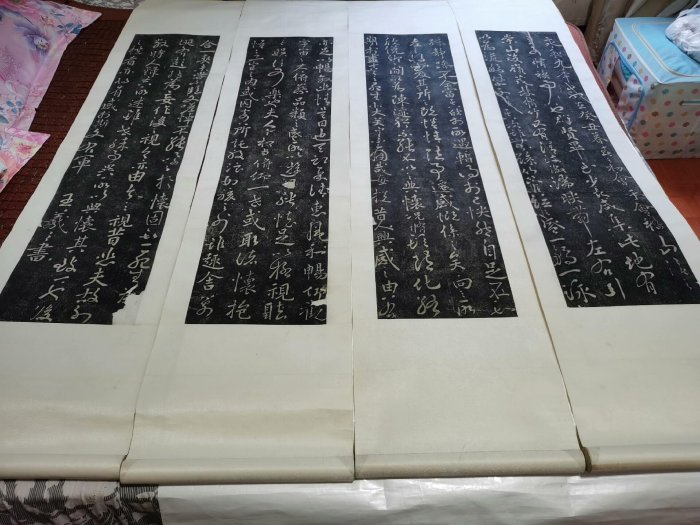 永和九年歲在癸丑暮春之初會于會稽山
陰之蘭亭脩禊事也群賢畢至少長咸集此地有
崇山峻領茂林脩竹又有清流激湍暎帶左右引
以為流觴曲水列坐其次雖無絲竹管弦之盛一觴一詠
亦足以暢敘幽情是日也天朗氣清惠風和暢仰觀
宇宙之大俯察品類之盛所以遊目騁懷足以極視聽
之娛信可樂也夫人之相與俯仰一世或取諸懷抱
悟言一室之內或因寄所託放浪形骸之外雖趣舍萬
殊靜躁不同當其欣於所遇暫得於己快然自足不知
老之將至及其所之既惓情隨事遷感慨係之矣向之所
欣俛仰之間以為陳迹猶不能不以之興懷況脩短隨化終
期於盡古人云死生亦大矣豈不痛哉每攬昔人興感之由若
合一契未嘗不臨文嗟悼不能喻之於懷固知一死生
誕齊彭殤為妄作後之視今亦由今之視昔悲夫故列
敘時人錄其所述雖世殊事異所以興懷其致一也後
之攬者亦將有感於斯文右軍王羲之書